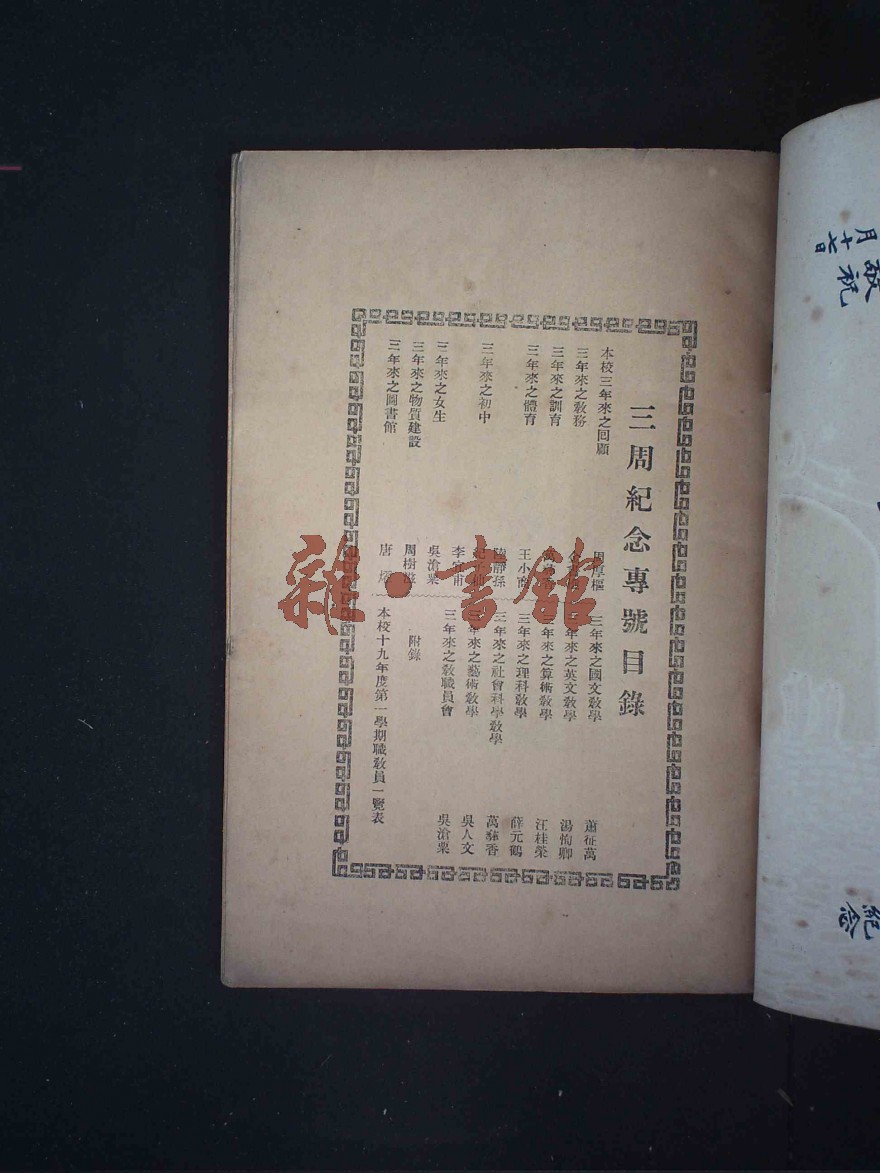 三周紀念專號目錄
本校三年來之回顧 周厚樞
三年來之教務
三年來之訓育
三年來之體育 王小
三年來之初中 陸靜孫
李 甫
三年來之女生 吳滄粟
三年來之物質建設 周樹滋
三年來之圖書館 唐
三年來之國文教學 蕭征萬
三年來之英文教學 湯恂卿
三年來之算術教學 汪桂榮
三年來之理科教學 薛元鶴
三年來之社會科學教學 萬 香
三年來之藝術教學 吳人文
三年來之教職員會 吳滄粟
附錄
本校十九年度第一學期職教員一覽表
雜·書館
敬祝
月十七日
紀念